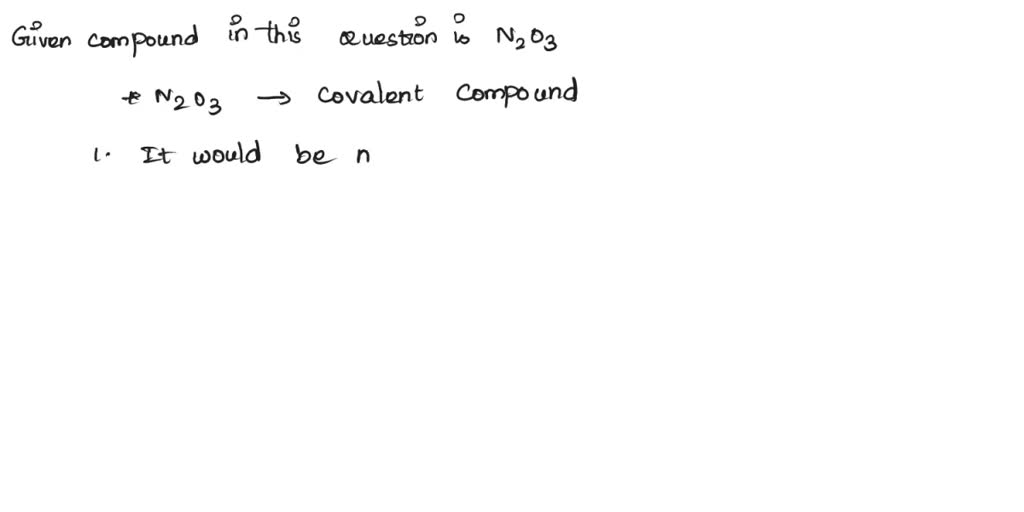 Given compound in this question is N₂O₃
* N₂O₃ → Covalent Compound
1. It would be n